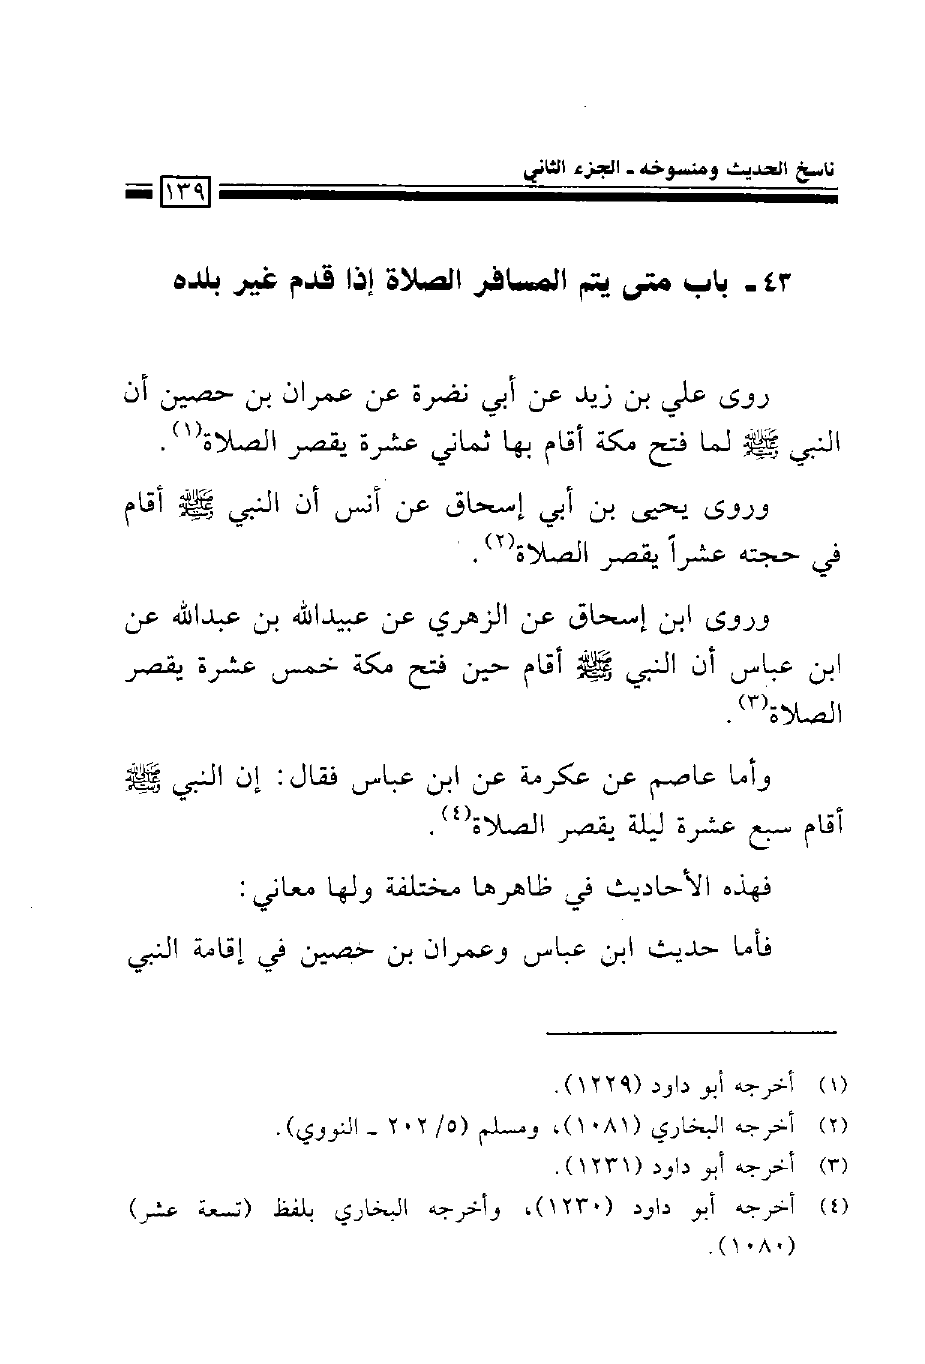 ناسخ الحديث ومنسوخه ـ الجزء الثاني
١٣٩
٤٣ ـ باب متى يتم المسافر الصلاة إذا قدم غير بلده
روى علي بن زيد عن أبي نضرة عن عمران بن حصين أن
النبي ﷺ لما فتح مكة أقام بها ثماني عشرة يقصر الصلاة(١).
وروى يحيى بن أبي إسحاق عن أنس أن النبي ﷺ أقام
في حجته عشراً يقصر الصلاة(٢).
وروى ابن إسحاق عن الزهري عن عبيدالله بن عبدالله عن
ابن عباس أن النبي ﷺ أقام حين فتح مكة خمس عشرة يقصر
الصلاة(٣).
وأما عاصم عن عكرمة عن ابن عباس فقال: إن النبي ﷺ
أقام سبع عشرة ليلة يقصر الصلاة(٤).
فهذه الأحاديث في ظاهرها مختلفة ولها معاني:
فأما حديث ابن عباس وعمران بن حصين في إقامة النبي
(١) أخرجه أبو داود (١٢٢٩).
(٢) أخرجه البخاري (١٠٨١)، ومسلم (٢٠٢/٥ ـ النووي).
(٣) أخرجه أبو داود (١٢٣١).
(٤) أخرجه أبو داود (١٢٣٠)، وأخرجه البخاري بلفظ (تسعة عشر)
(١٠٨٠).